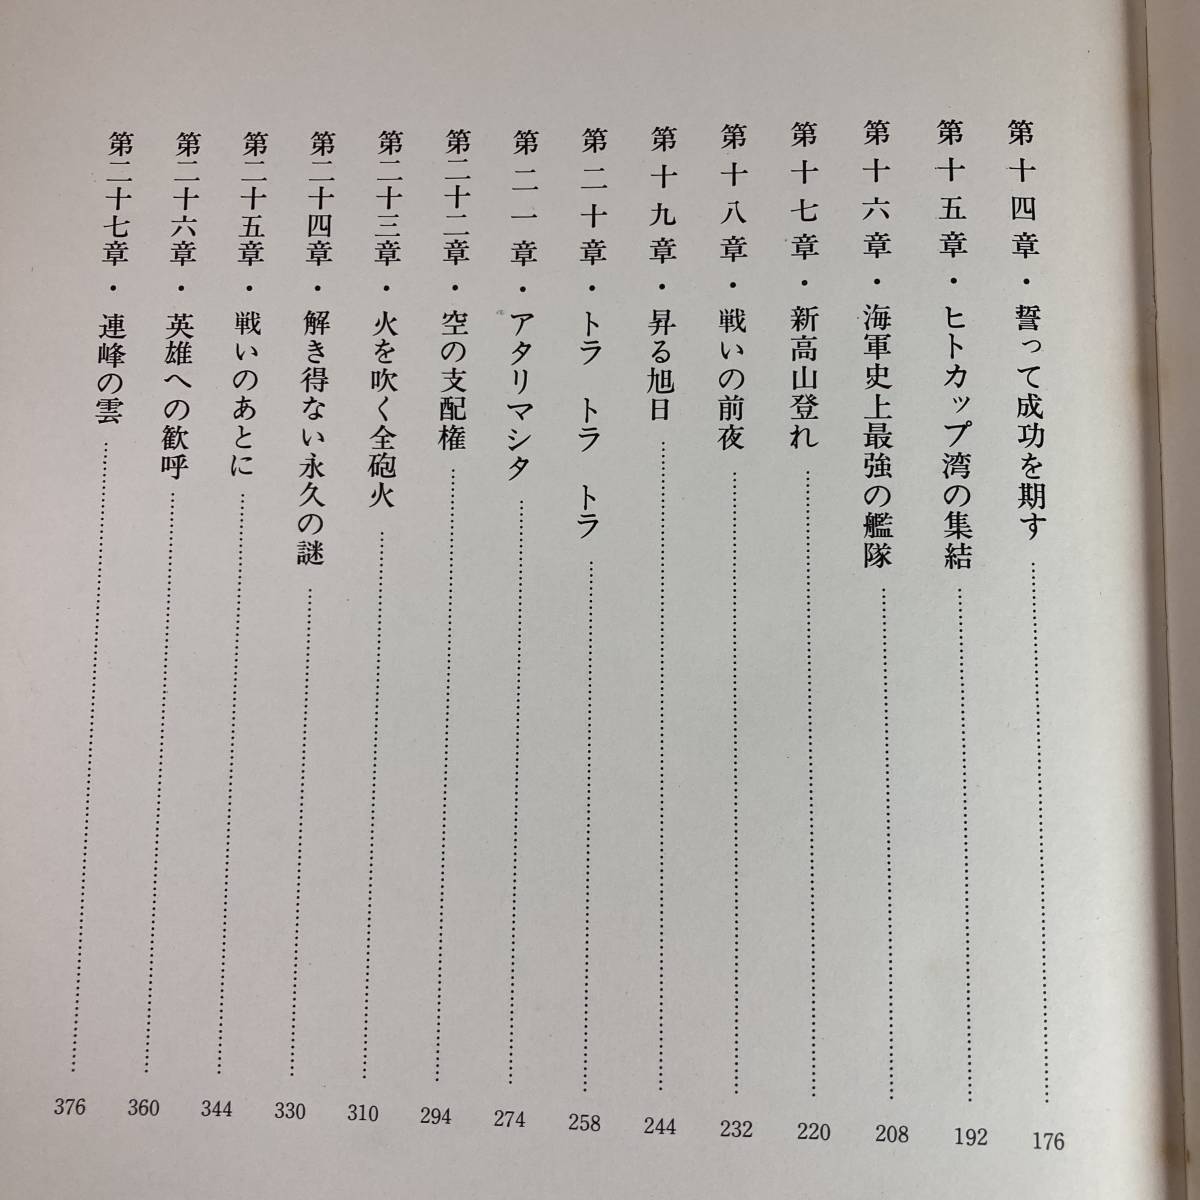 第十四章・誓って成功を期す…………176
第十五章・ヒトカップ湾の集結…………192
第十六章・海軍史上最強の艦隊…………208
第十七章・新高山登れ…………220
第十八章・戦いの前夜…………232
第十九章・昇る旭日…………244
第二十章・トラ　トラ　トラ…………258
第二一章・アタリマシタ…………274
第二十二章・空の支配権…………294
第二十三章・火を吹く全砲火…………310
第二十四章・解き得ない永久の謎…………330
第二十五章・戦いのあとに…………344
第二十六章・英雄への歓呼…………360
第二十七章・連峰の雲…………376